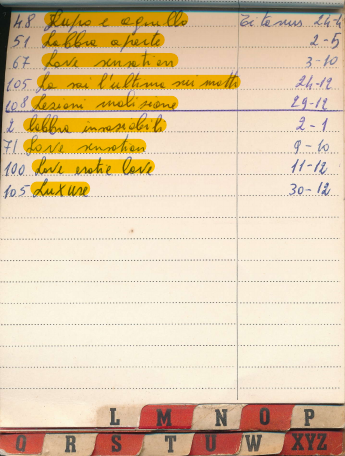 48 Lupo e agnello Titanus 24-4
51 Labbra aperte 2-5
67 Love sensation 3-10
105 La sai l'ultima sui matti 24-12
108 Lezioni maliziose 29-12
2 labbra insaziabili 2-1
71 Love sensation 9-10
100 Love erotic love 11-12
105 Luxure 30-12
L M N O P
Q R S T U W XYZ